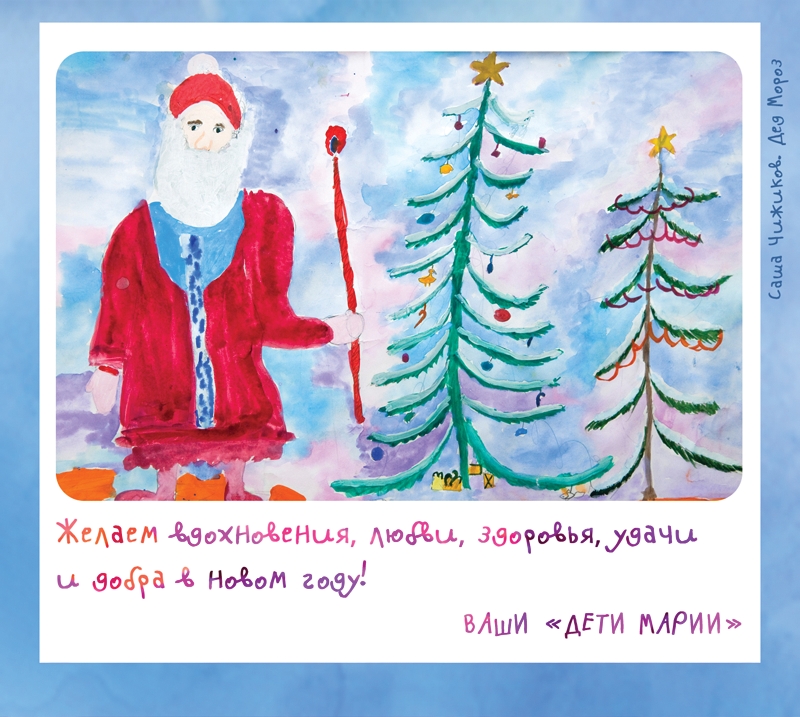 Саша Чижиков. Дед Мороз
Желаем вдохновения, любви, здоровья, удачи
и добра в новом году!
ВАШИ «ДЕТИ МАРИИ»